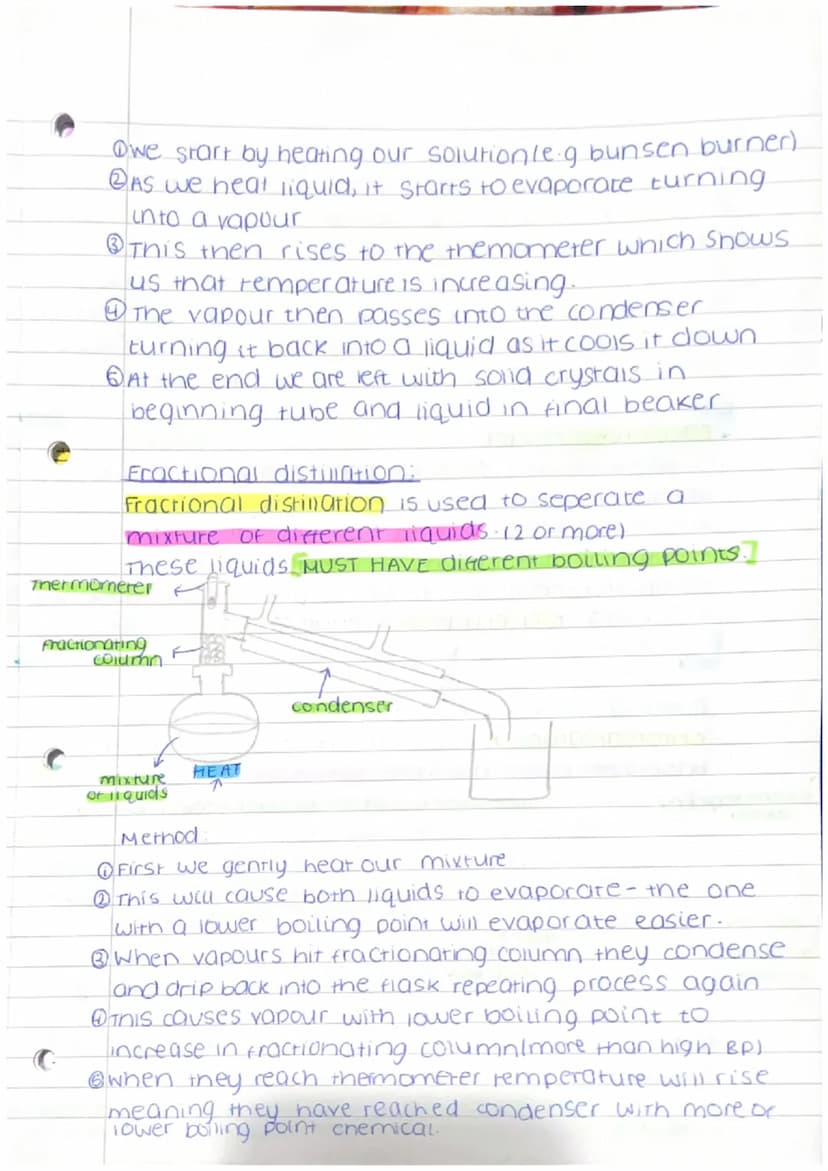 ①We start by heating our solution(e.g bunsen burner)
②As we heat liquid, it starts to evaporate turning
into a vapour
③This then rises to the themometer which shows
us that temperature is increasing.
④The vapour then passes into the condenser
turning it back into a liquid as it cools it down
⑤At the end we are left with solid crystals in
beginning tube and liquid in final beaker
Fractional distillation:
Fractional distillation is used to seperate a
mixture of different liquids. (2 or more)
These liquids [MUST HAVE different boiling points.]
Thermometer
Fractionating
column
condenser
HEAT
mixture
of liquids
Method:
①First we gently heat our mixture
②This will cause both liquids to evaporate - the one
with a lower boiling point will evaporate easier.
③When vapours hit fractionating column they condense
and drip back into the flask repeating process again
④This causes vapour with lower boiling point to
increase in fractionating column(more than high BP)
⑤when they reach thermometer temperature will rise
meaning they have reached condenser with more of
lower boiling point chemical.